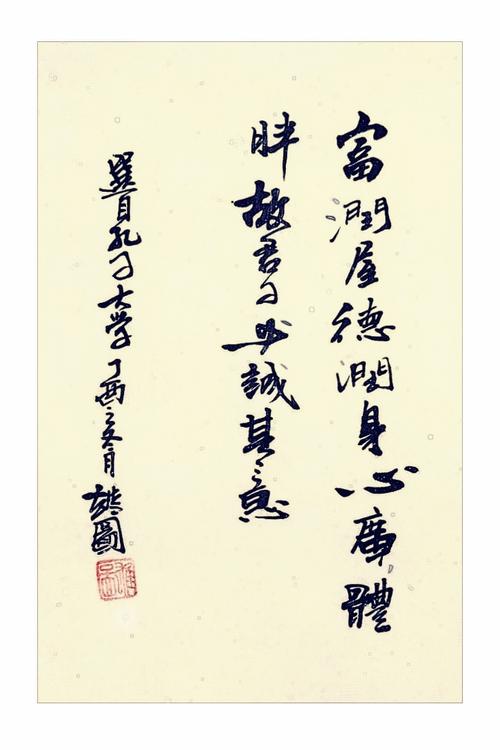 富潤屋德潤身心廣體
胖故君子必誠其意
選自孔子大學丁酉之冬月雄圖